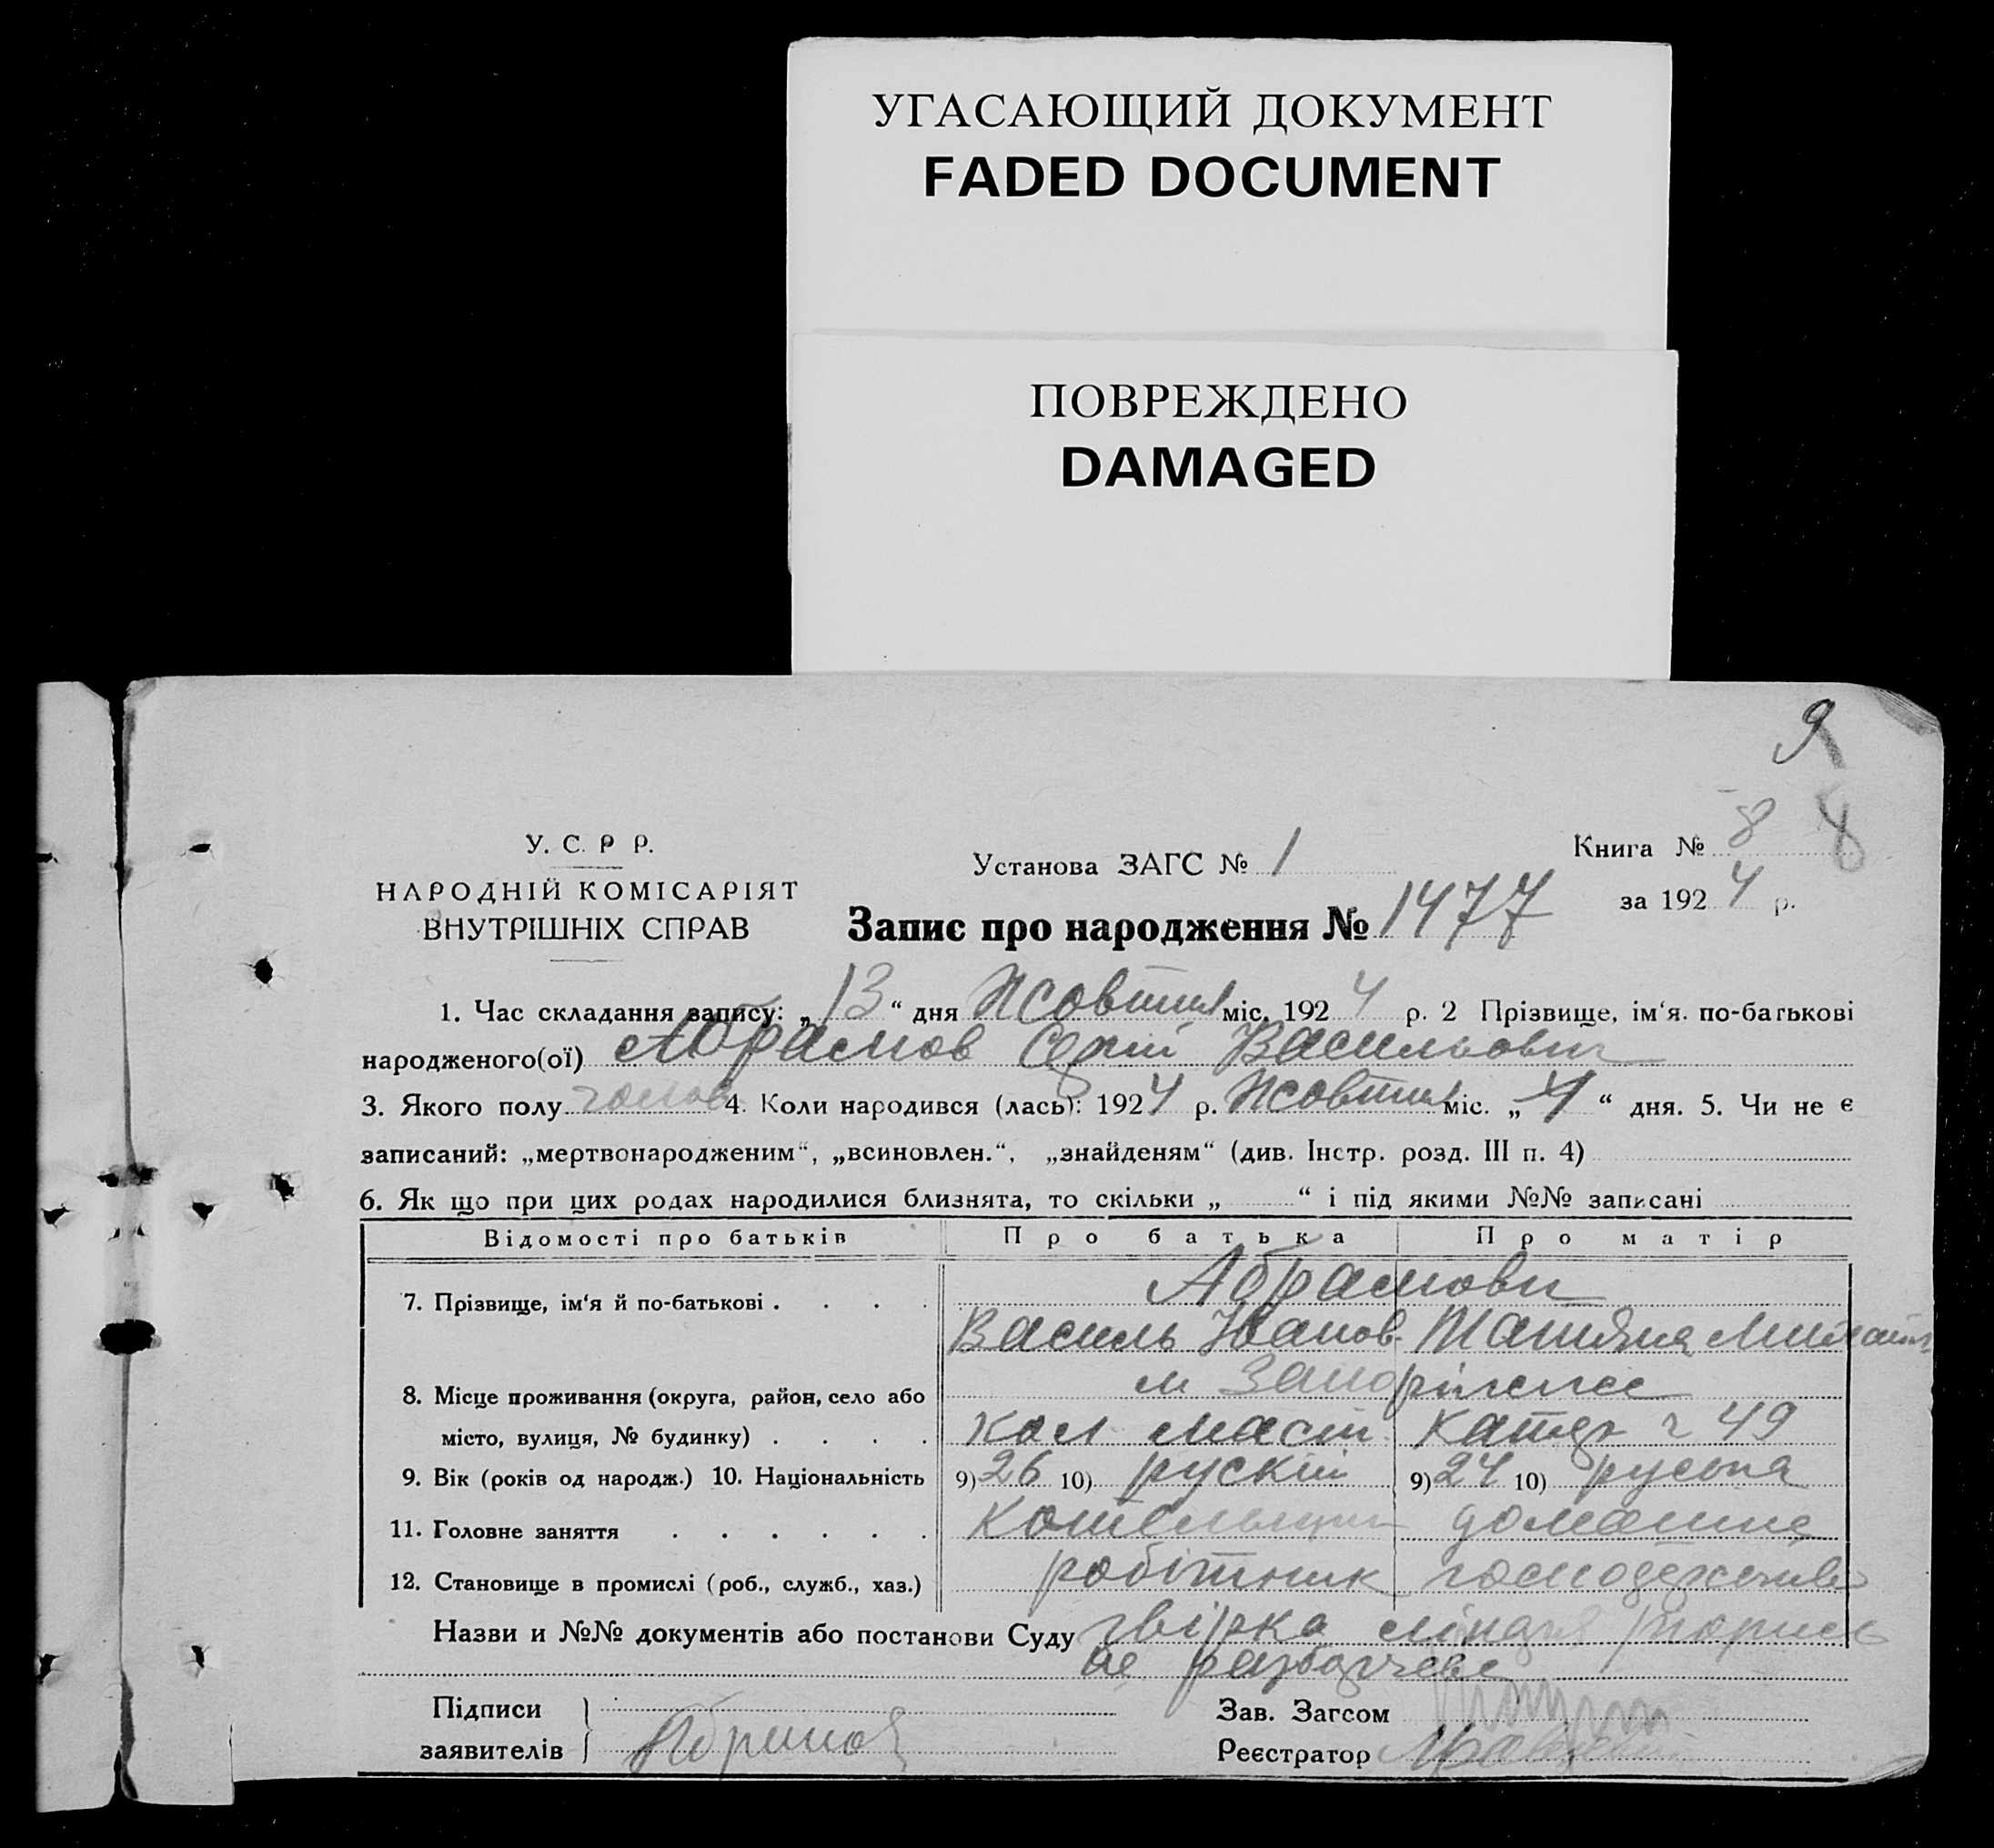 УГАСАЮЩИЙ ДОКУМЕНТ
FADED DOCUMENT
ПОВРЕЖДЕНО
DAMAGED
9
8
У. С. Р Р.
НАРОДНІЙ КОМІСАРІЯТ
ВНУТРІШНІХ СПРАВ
Установа ЗАГС № 1
Книга № 8
за 1924 р.
Запис про народження № 1477
1. Час складання запису: „ 13 “ дня Жовтня міс. 1924 р. 2 Прізвище, ім‘я. по-батькові
народженого(ої) Абрамов Сергій Васильович
3. Якого полу чолов 4. Коли народився (лась): 1924 р. Жовтня міс. „ “ дня. 5. Чи не є
записаний: „мертвонародженим“, „всиновлен.“, „знайденям“ (див. Інстр. розд. III п. 4)
6. Як що при цих родах народилися близнята, то скільки „ “ і під якими №№ записані
Відомості про батьків Про батька Про матір
7. Прізвище, ім‘я й по-батькові . . . . Абрамови
Василь Іванов. Татяна Михайл
8. Місце проживання (округа, район, село або м Запоріжже
місто, вулиця, № будинку) . . . . кол 49
9. Вік (років од народж.) 10. Національність 9) 26 10) рускій 9) 24 10) руська
11. Головне заняття . . . . . . Котельщик домашнє
12. Становище в промислі (роб., служб., хаз.) робітник
Назви и №№ документів або постанови Суду
Підписи
заявителів Абрамов
Зав. Загсом
Реєстратор